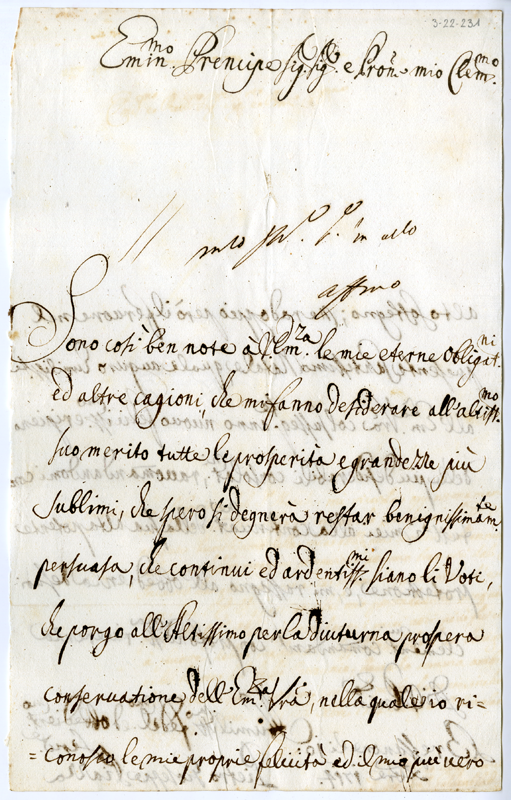 3-22-231
Emin.mo Prencipe Sig.r Sig.r e Pron.e mio Clem.mo
in
affmo
Sono così ben note à V. Em.za le mie eterne obligat.ni
ed altre cagioni, che mi fanno desiderare all'altiss.mo
suo merito tutte le prosperità e grandezze più
sublimi, che spero si degnerà restar benignissimam.te
persuasa, che continui ed ardentiss.mi siano li Voti,
che porgo all'Altissimo per la diuturna prospera
conseruatione dell'Em.za Vrã, nella quale io ri=
=conosco le mie proprie felicità ed il mio più uero